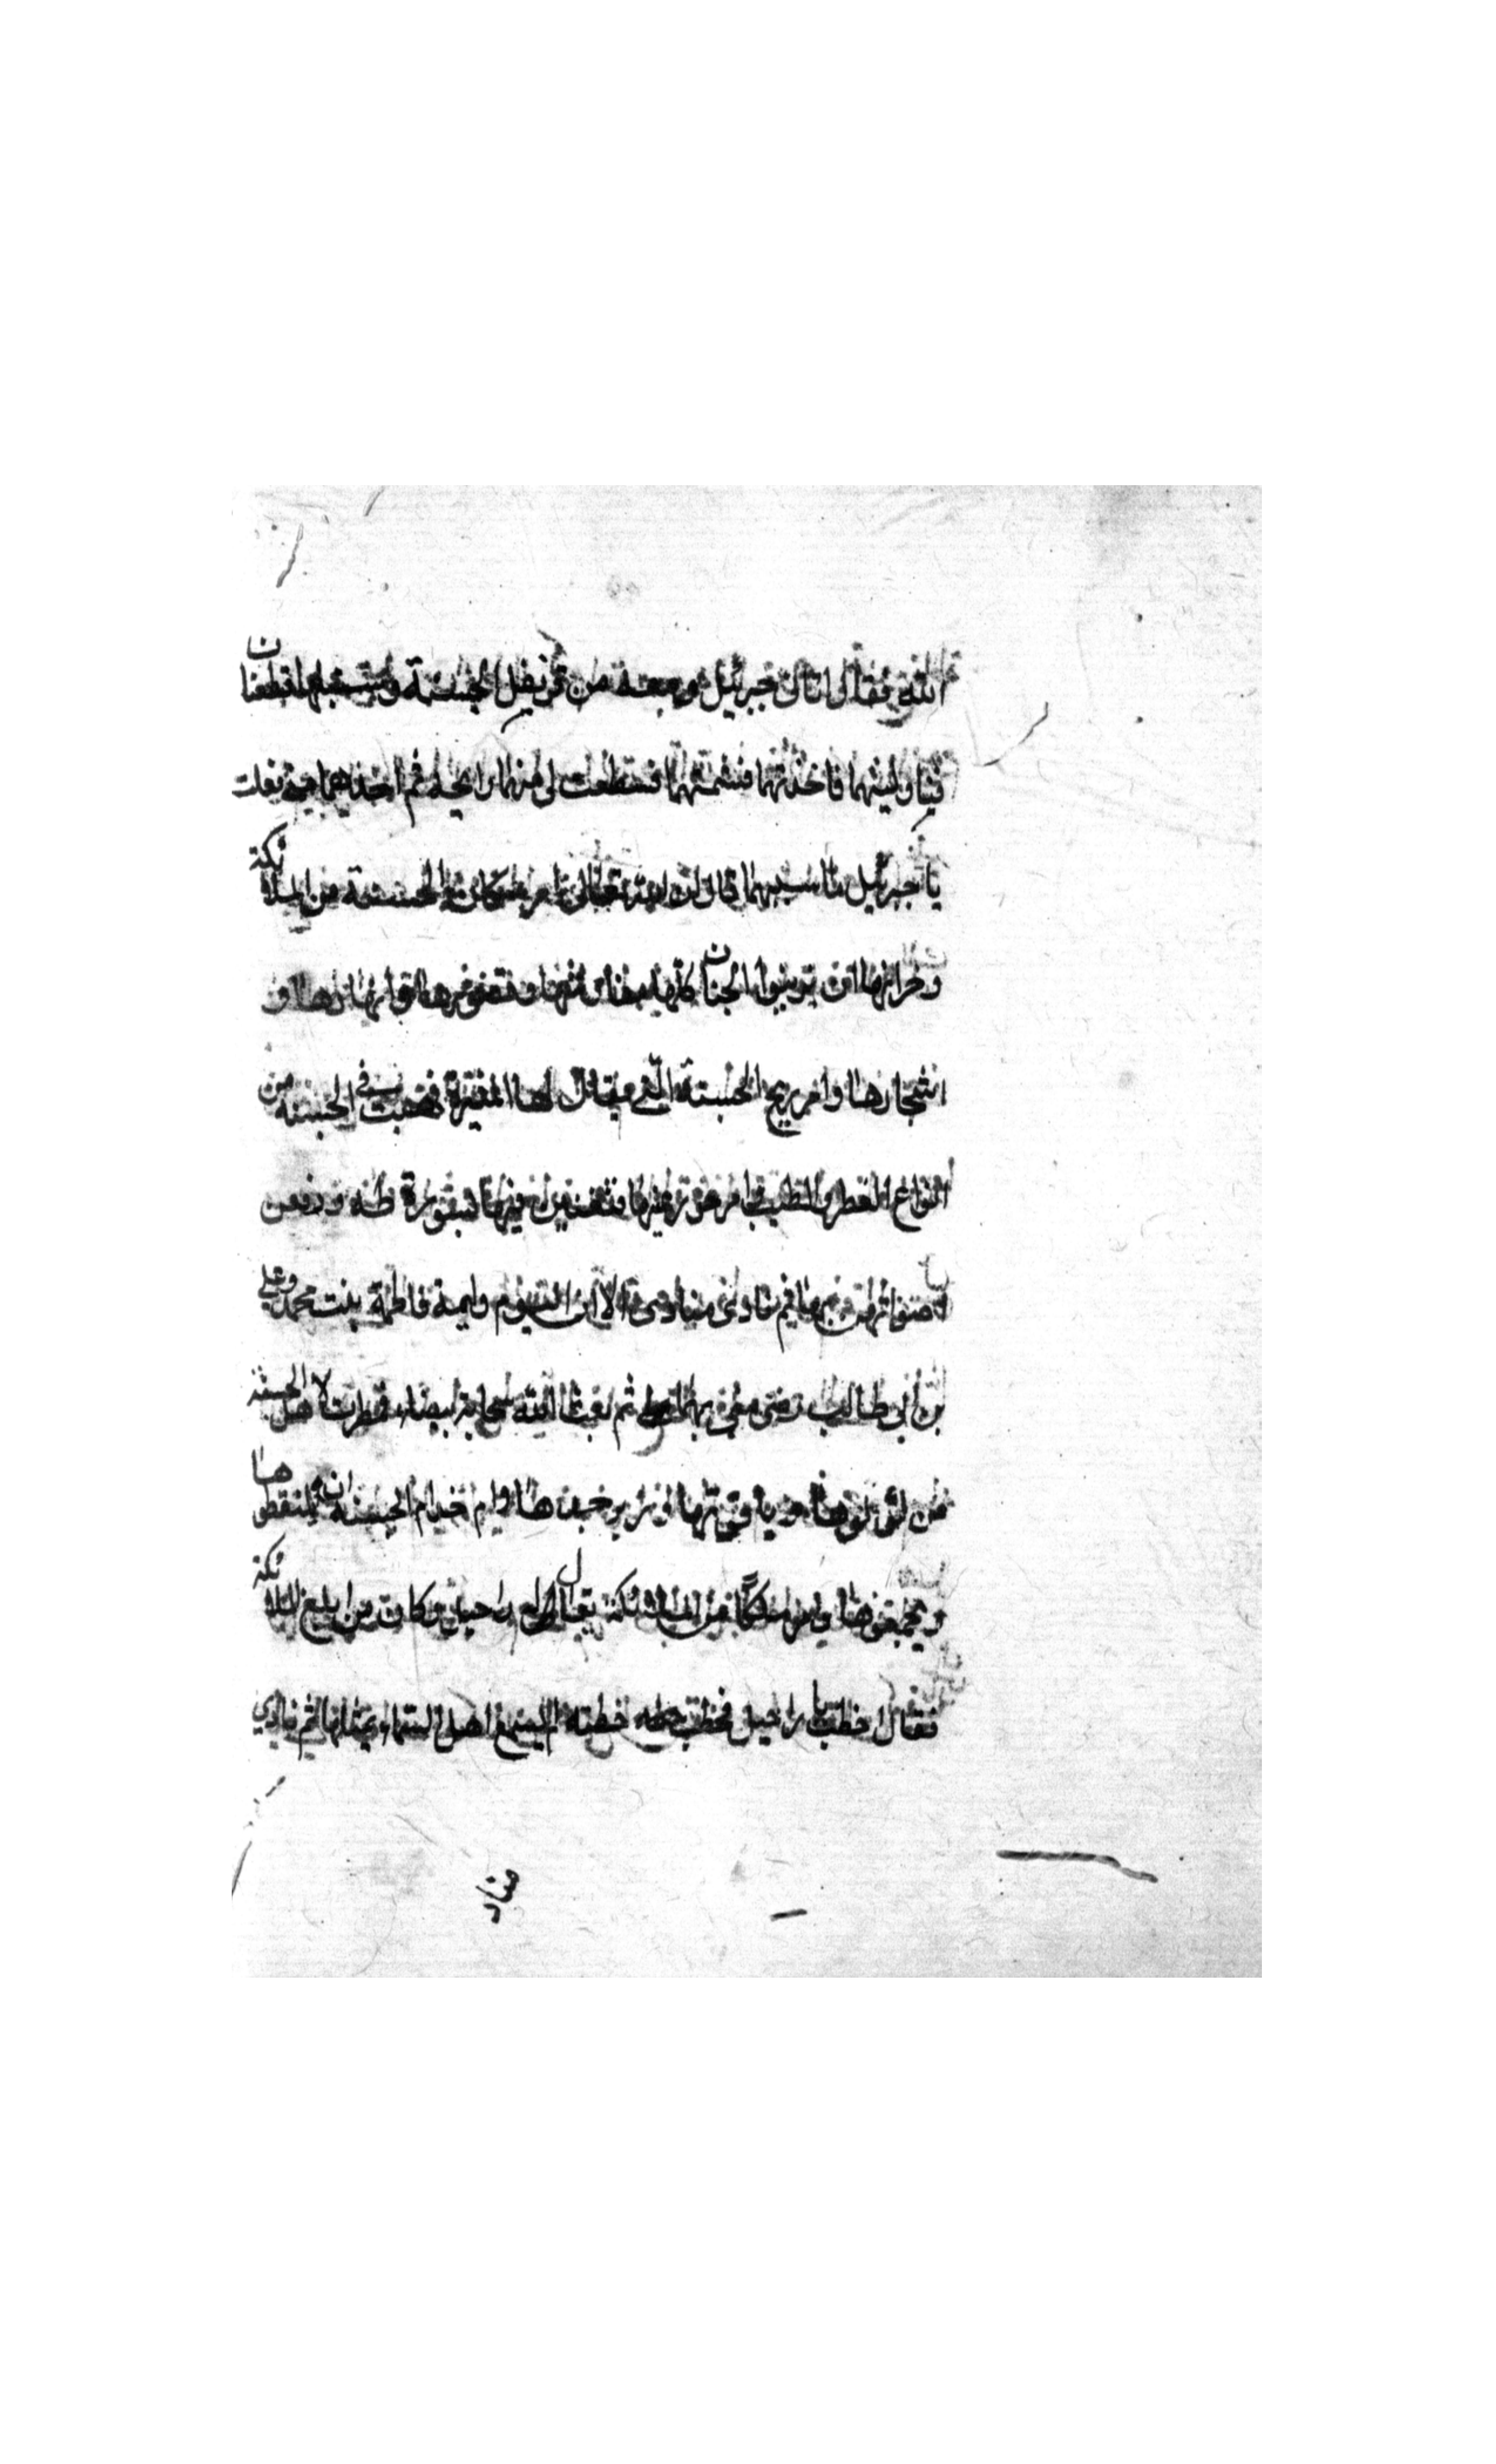 الله فقال اتاني جبرئيل ومعه من قرنفل الجنة وسنبلها قطعتان
فناولنيهما فاخذتهما فشممتهما فسطعت لي منهما رايحة ثم اخذهما مني فقلت
يا جبرئيل ما سببهما قال ان الله تعالى امر سكان الجنة من الملائكة
وخزانها ان يزينوا الجنان كلها بمفارشها وقصورها وانهارها و
اشجارها وامر ريح الجنة التي يقال لها المثيرة فهبت في الجنة من
انواع العطر والطيب وامر حور عينها فيها سورة طه ورفعن
اصواتهن بها ثم نادى مناد الا ان اليوم وليمة فاطمة بنت محمد وعلي
بن ابي طالب رضى مني بهما ثم بعث الله سحابة بيضاء فمطرت لاهل الجنة
من لؤلؤها وياقوتها وزبرجدها وامر خدام الجنة ان يلتقطوها
ويجمعوها وامر ملكًا من الملائكة يقال له راحيل وكان من ابلغ الملائكة
فقال اخطب يا راحيل فخطب خطبة لم يسمع اهل السماء بمثلها ثم نادى
مناد